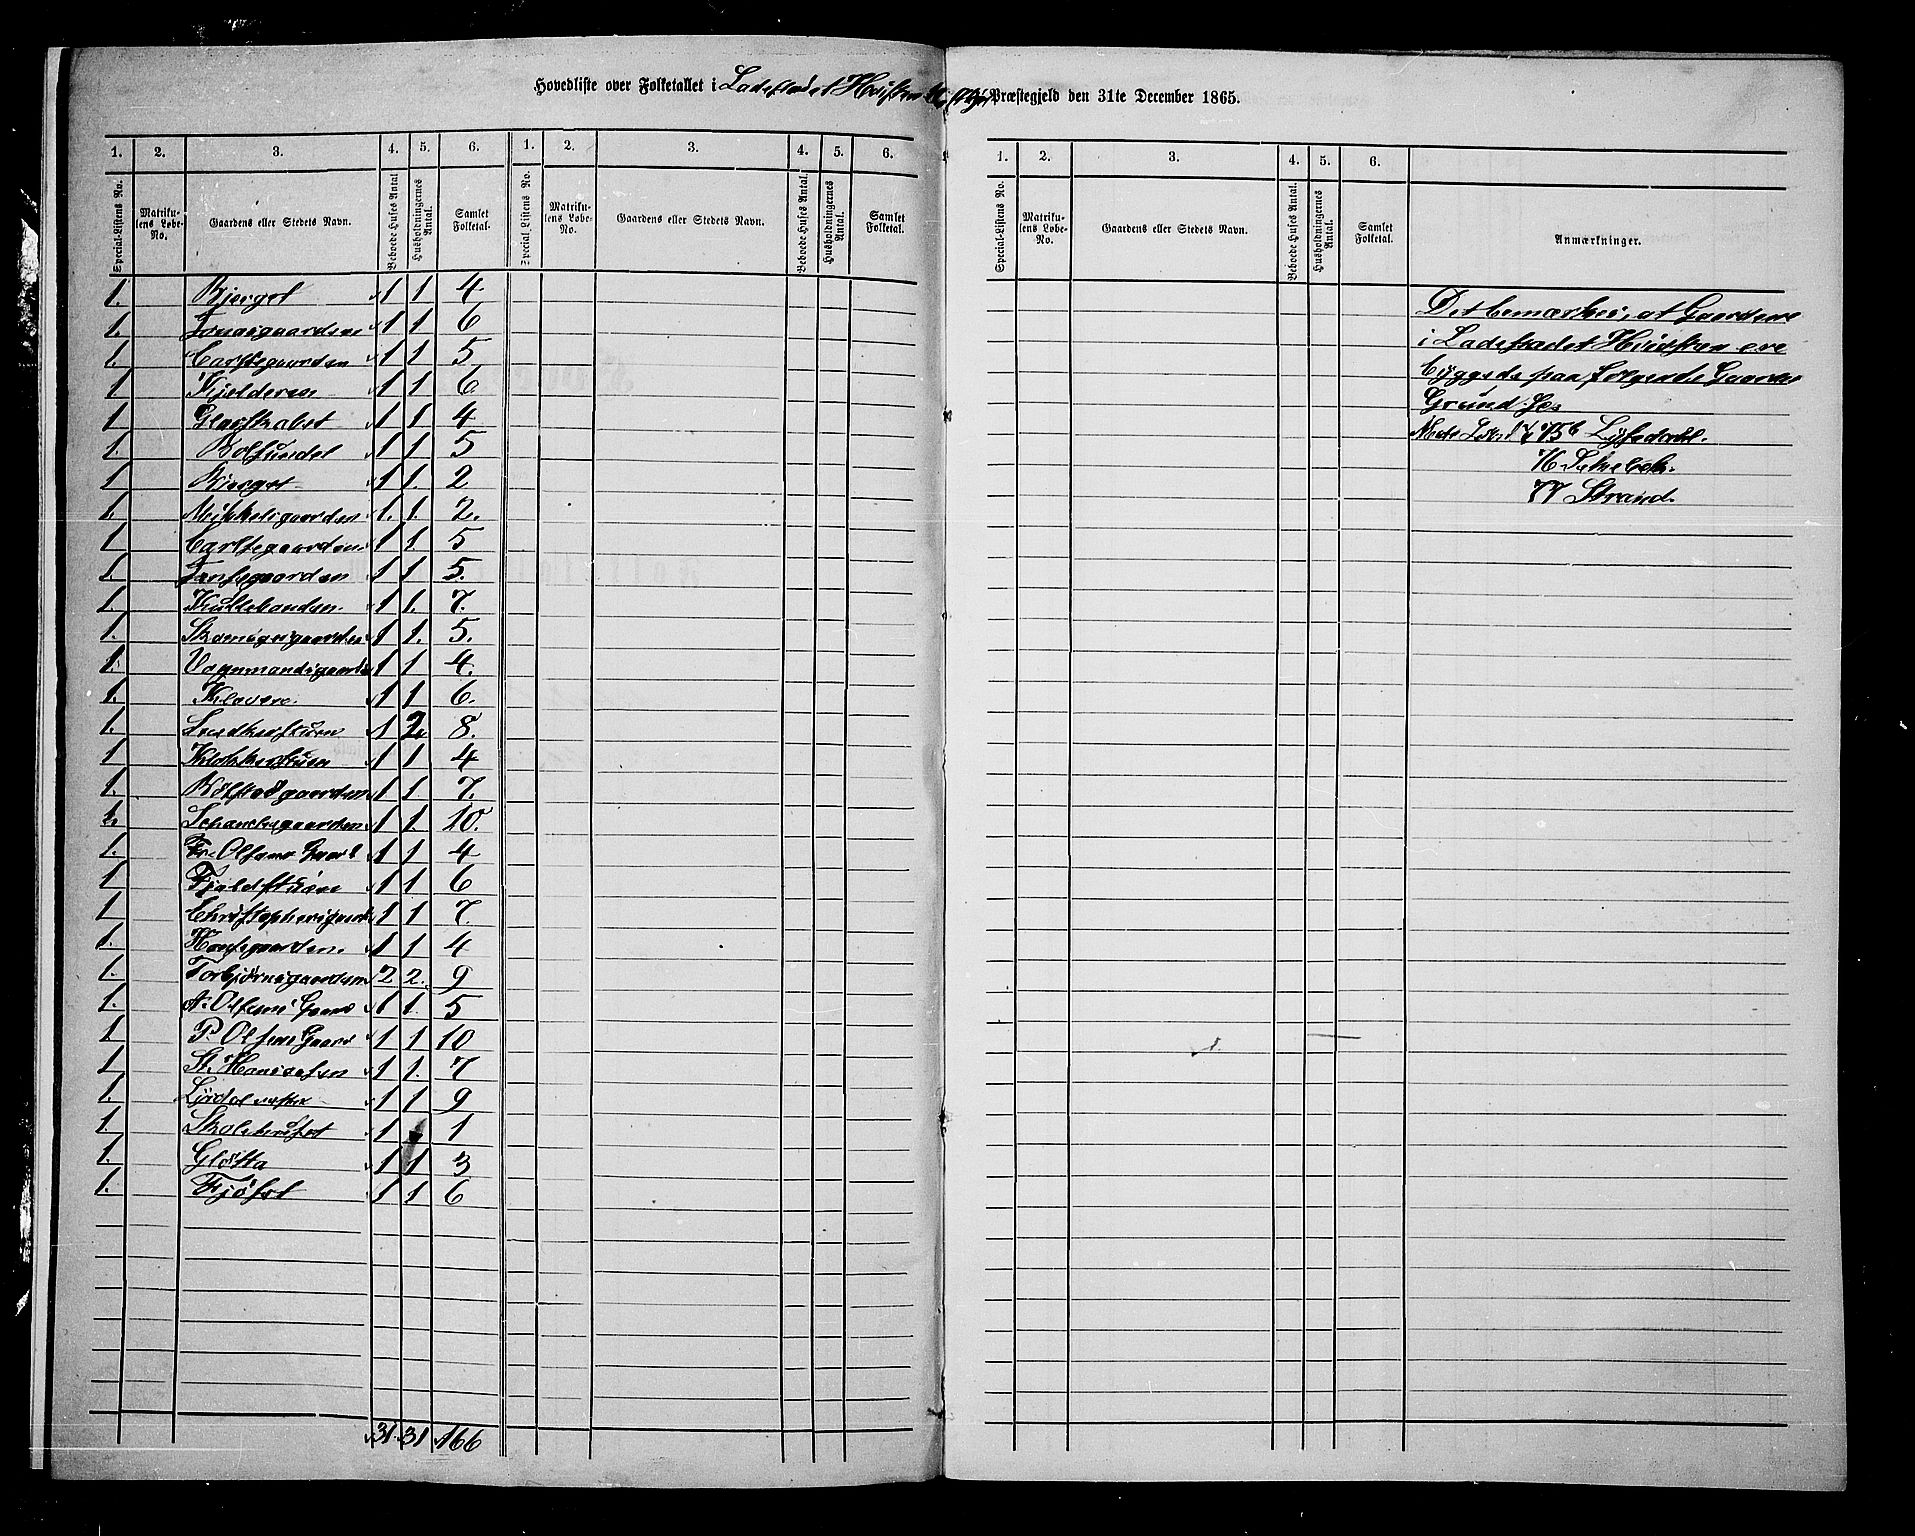 Hovedliste over Folketallet i Ladestedet Hvidsten Præstegjeld den 31te December 1865.
1. 2. 3. 4. 5. 6. 1. 2. 3. 4. 5. 6. 1. 2. 3. 4. 5. 6.
Special-Listens No. Matrikulens Løbe-No. Gaardens eller Stedets Navn. Beboede Huses Antal Husholdningernes Antal. Samlet Folketal. Special-Listens No. Matrikulens Løbe-No. Gaardens eller Stedets Navn. Beboede Huses Antal. Husholdningernes Antal. Samlet Folketal. Special-Listens No. Matrikulens Løbe-No. Gaardens eller Stedets Navn. Beboede Huses Antal. Husholdningernes Antal. Samlet Folketal. Anmærkninger.
1. Bjerget 1 1 4
1. 1 1 6
1. Carlsegaarden 1 1 5
1 Kjelderen 1 1 6
1. Glasskabet 1 1 4
1. 1 1 5
1 Bierget 1 1. 2
1. Mikkelsgaarden 1. 1. 2.
1 Carlsegaarden 1 1. 5
1. Jansegaarden 1 1 5.
1. 1 1. 7.
1. 1 1. 5.
1. Vognmandsgaarden 1 1 4.
1. Klavere. 1 1 6.
1. 1 2 8.
1 Klokkerstuen 1 1 4
1. Bølstadgaarden 1 1. 7.
1. Schanckegaarden 1 1. 10.
1. Fr. Olsens Gaard 1 1 4
1 Fjeldstuen 1 1 6
1 Christophersgaard 1 1 7
1. Hansegaarden. 1 1 4
1. Torbjørnsgaarden 2 2. 9
1. A. Olsens Gaard 1 1. 5
1 P. Olsens Gaard 1 1 10
1. St. Hansaasen 1 1. 7
1. 1 1 9
1. Skolehuset 1 1
1. Gløtta 1 1 3
1. Fjøset 1 1 6
31. 31 166
Det bemærkes, at Gaardene
i Ladestedet Hvidsten ere
byggede paa følgende Gaardes
Grund
75b
76
77 Strand.